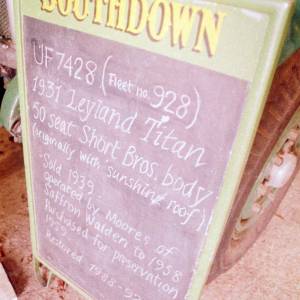 SOUTHDOWN
UF7428 (Fleet no. 928)
1931 Leyland Titan
50 seat Short Bros. body
(originally with 'sunshine roof')
Sold 1939 -
operated by Moore's of
Saffron Walden to 1958
Purchased for preservation
Restored 1988-92